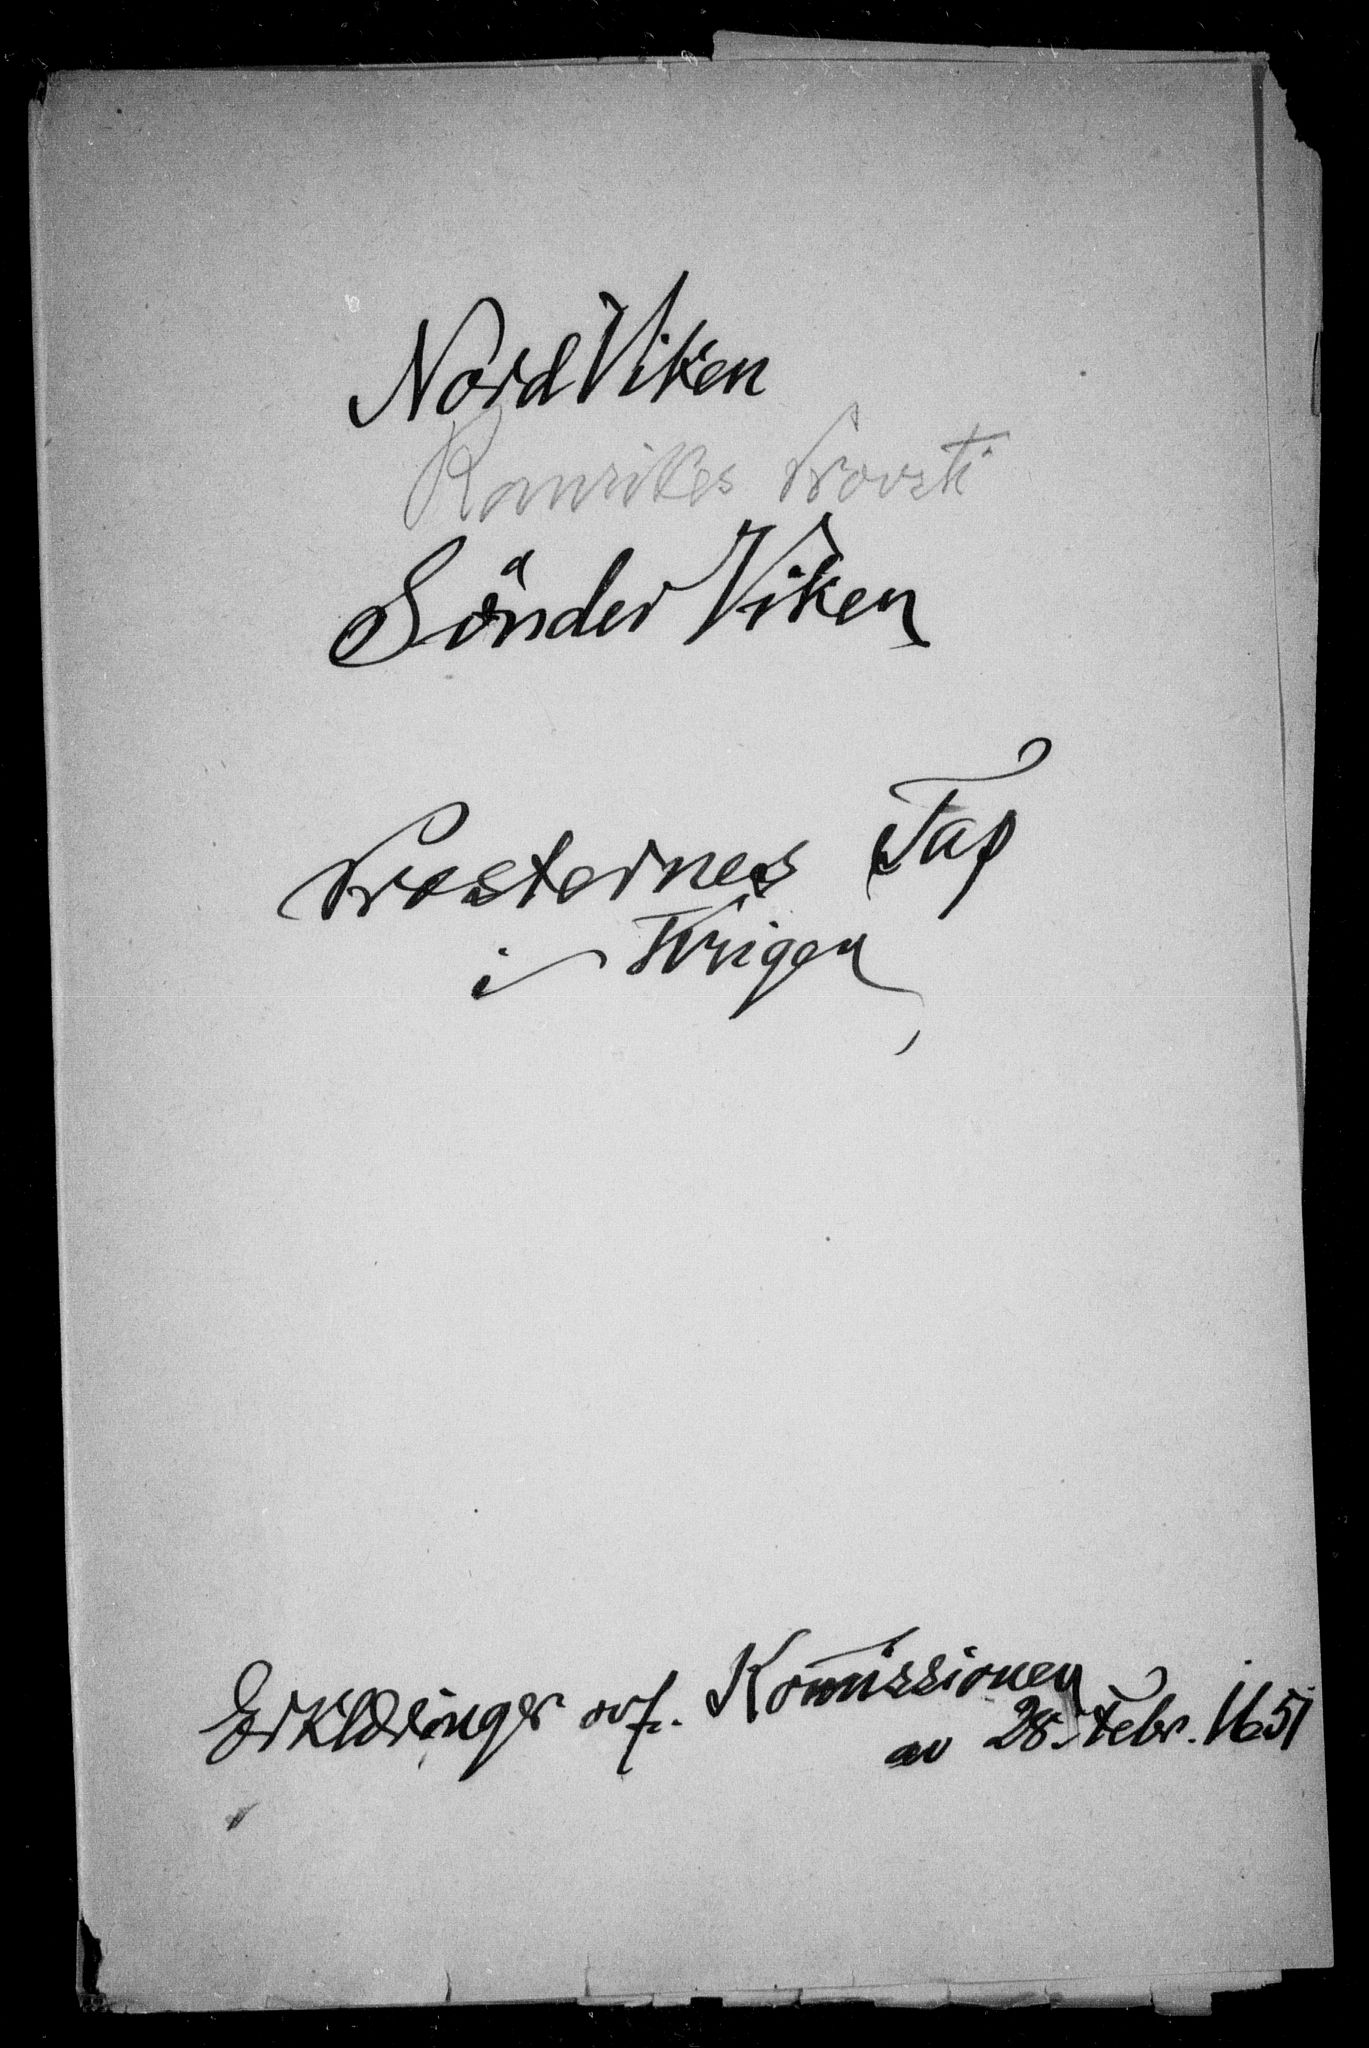 Nord Viken
Ranrikes Provsti
Sönder Viken
Presternes Tap
i Krigen
Erklæringer ovf. Kommissionen
av 28. Febr. 1651